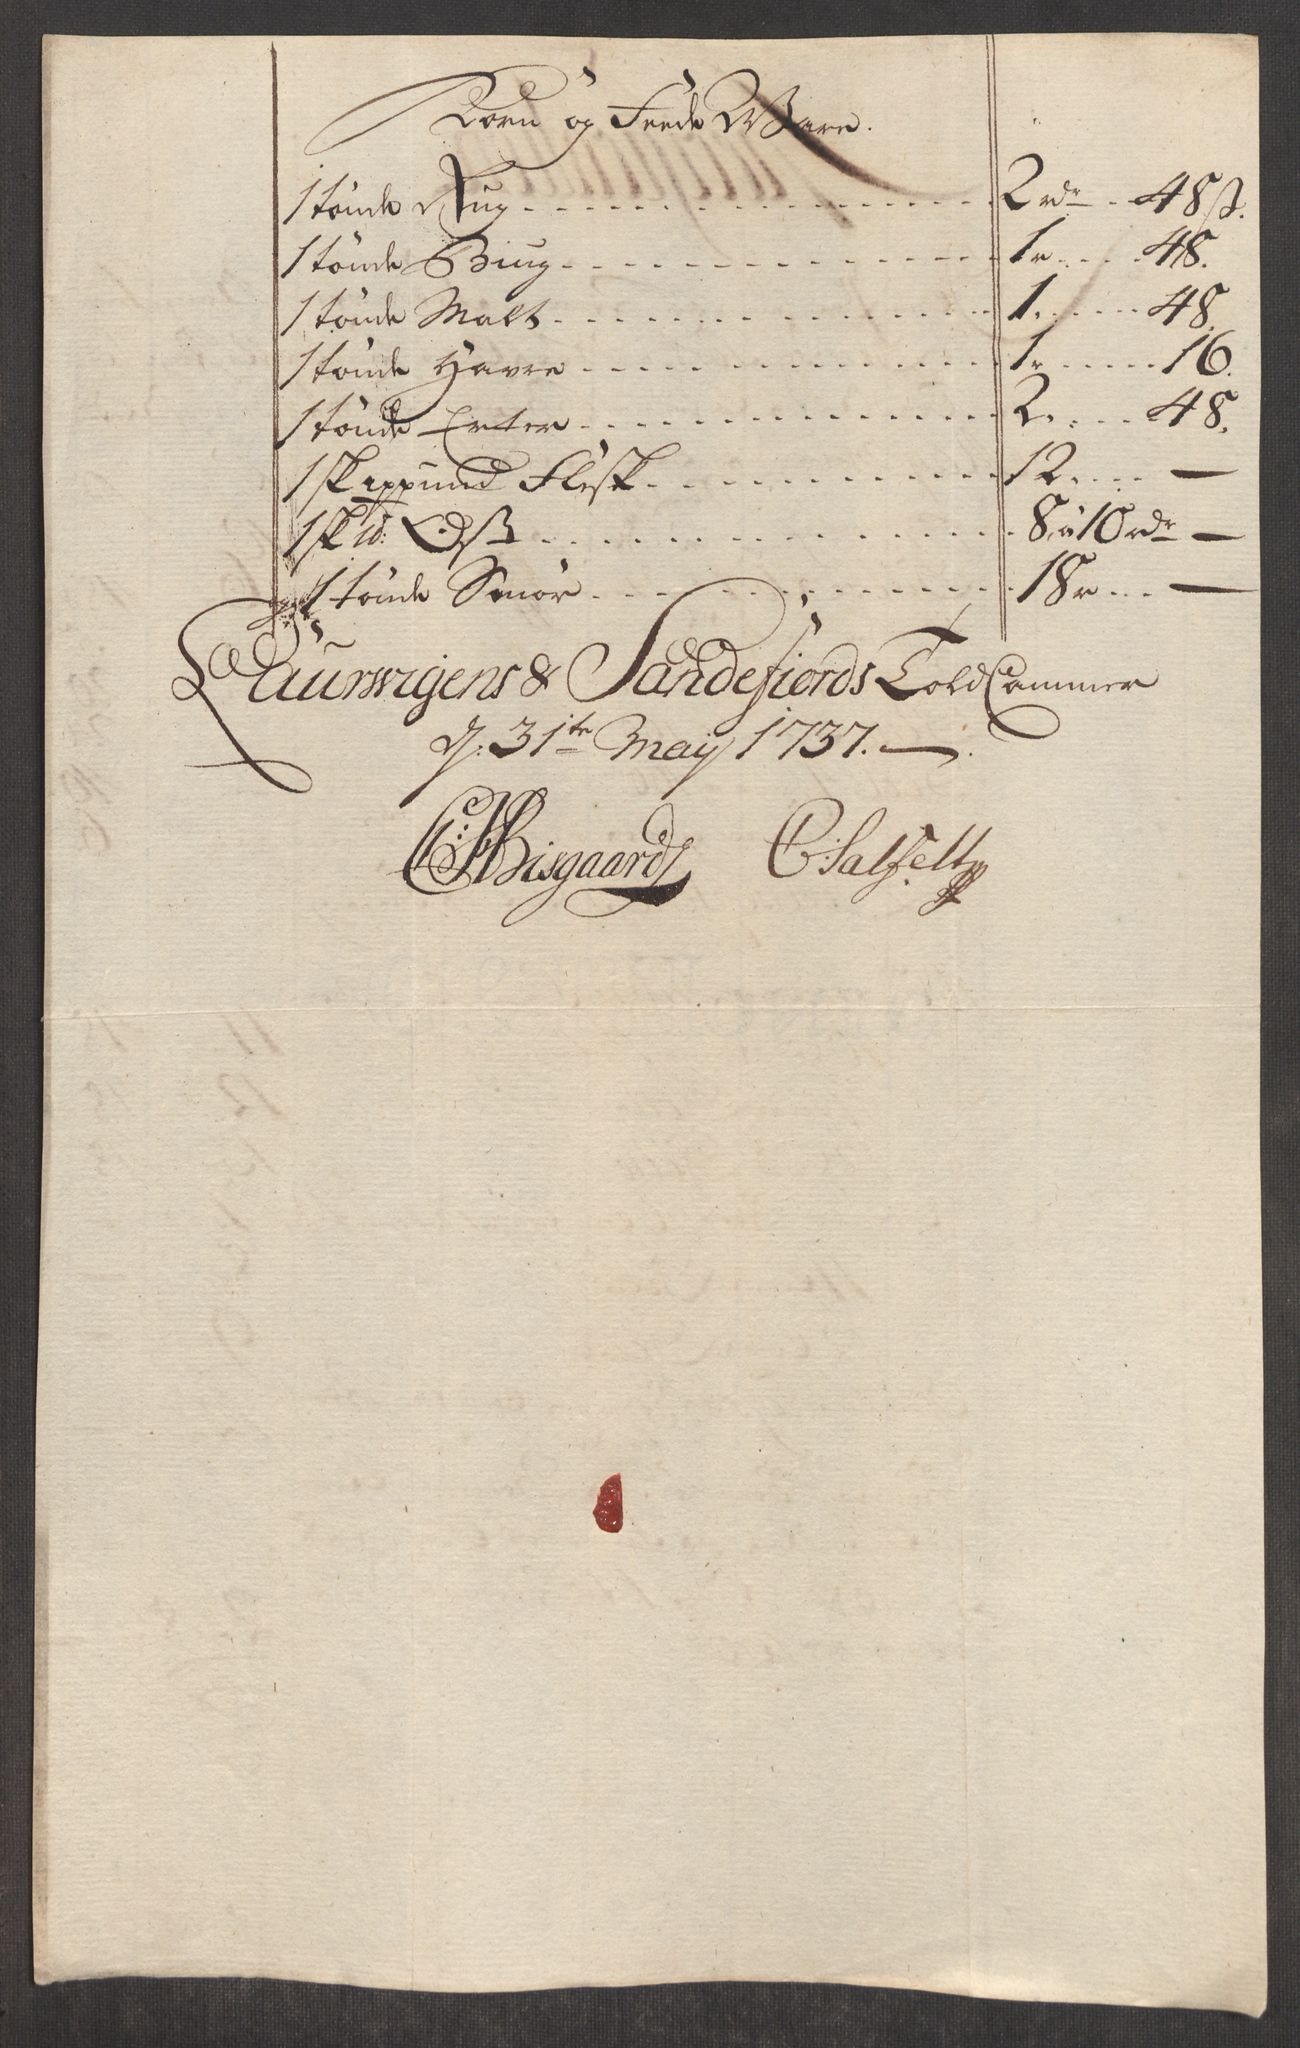 Korn og Feede Ware.
1 tönde Rug 2 rdr 48 ß.
1 tönde Biug 1 r 48.
1 tönde Malt 1 48.
1 tönde Havre 1 r 16.
1 tönde Erter 2 48.
1 skippund Flesk 12 —
1 sk td: 8 à 10 rdr —
1 tönde Smör 18 r —
Laurwigens & Sandefiords Told Cammer
d. 31te Maij 1737. —
Bisgaard C: Salfelt